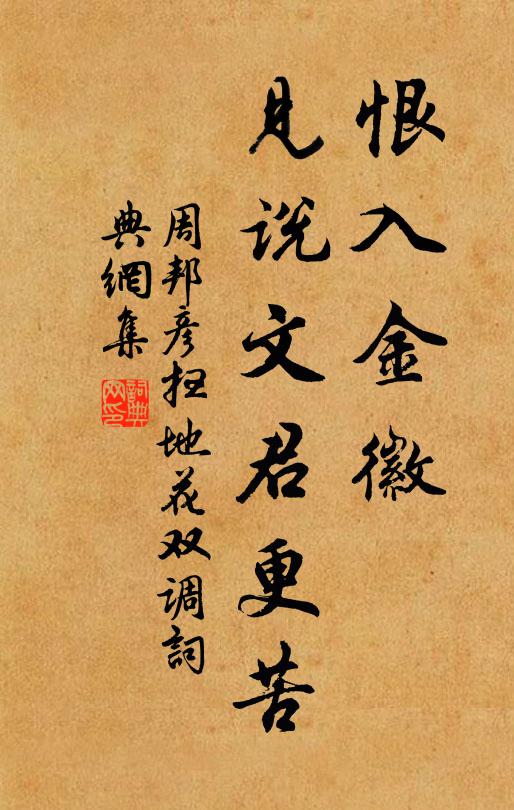 恨入金徽
见说文君更苦
周邦彦扫地花双调詞
典網集
詞典网印